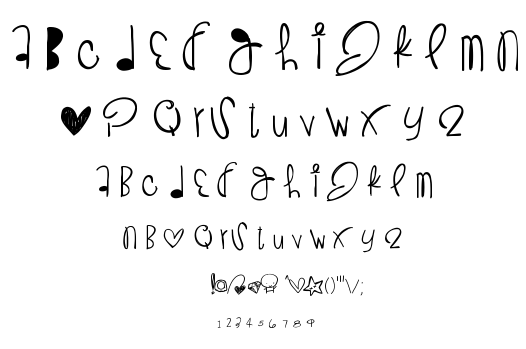 a B c d E f g h i J k l m n
♥ P Q r S t u v w x y z
a B c d E f g h i J k l m
n B ♡ Q r S t u v w x y z
! ☆ ( ) " ' \ / ;
1 2 3 4 5 6 7 8 9